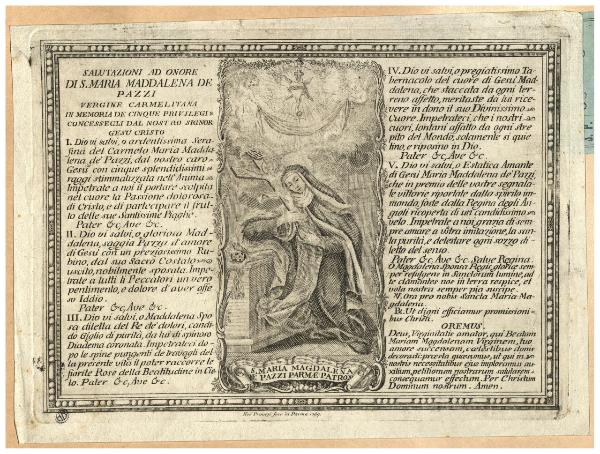 SALUTAZIONI AD ONORE
DI S. MARIA MADDALENA DE
PAZZI
VERGINE CARMELITANA
IN MEMORIA DE CINQUE PRIVILEGI
CONCESSEGLI DAL NOSTRO SIGNOR
GESU CRISTO
I. Dio vi salvi, o ardentissima Sera
fina del Carmelo Maria Madda
lena de' Pazzi, dal vostro caro
Gesù con cinque splendidissimi
raggi stimmatizzata nell'Anima
Impetrate a noi il portare scolpita
nel cuore la Passione dolorosa
di Cristo, e di partecipare il frut
to delle sue Santissime Piaghe.
Pater &c, Ave &c.
II. Dio vi salvi, o gloriosa Mad
dalena, saggia Pazza d'amore
di Gesù con un preziosissimo Ru
bino, dal suo Sacro Costato
uscito, nobilmente sposata. Impe
trate a tutti li Peccatori un vero
pentimento, e dolore d'aver offe
so Iddio.
Pater &c, Ave &c.
III. Dio vi salvi, o Maddalena Spo
sa diletta del Re de' dolori, candi
do Giglio di purità, da lui di spinoso
Diadema coronata. Impetrateci do
po le spine pungenti de travagli del
la presente vita il poter raccorre le
fiorite Rose della Beatitudine in Cie
lo. Pater &c, Ave &c.
S. MARIA MAGDALENA
PAZZI PARMÆ PATRON
IV. Dio vi salvi, o pregiatissimo Ta
bernacolo del cuore di Gesù Mad
dalena, che staccata da ogni ter
reno affetto, meritaste da lui rice
vere in dono il suo Divinissimo
Cuore. Impetrateci, che i nostri
cuori, lontani affatto da ogni stre
pito del Mondo, solamente si quie
tino, e riposino in Dio.
Pater &c, Ave &c.
V. Dio vi salvi, o Estatica Amante
di Gesù Maria Maddalena de' Pazzi,
che in premio delle vostre segnala
te vittorie riportate dallo spirito im
mondo, foste dalla Regina degli An
geli ricoperta di un candidissimo
velo. Impetrate a noi grazia di sem
pre amare a vostra imitazione, la san
ta purità, e detestare ogni sozzo di
letto del senso.
Pater &c, Ave &c, Salve Regina.
O Magdalena Sponsa Regis, gloriæ sem
per refulgens in Sanctorum lumine, ad
te clamantes nos in terra respice, et
vota nostra semper pia suscipe.
V. Ora pro nobis Sancta Maria Ma
gdalena.
R. Ut digni efficiamur promissioni
bus Christi.
OREMUS.
Deus, Virginitatis amator, qui Beatam
Mariam Magdalenam Virginem, tuo
amore accensam, cælestibus donis
decorasti: præsta quæsumus, ut qui in
nostris necessitatibus ejus imploramus au
xilium, petitionum nostrarum salutarem
consequamur effectum. Per Christum
Dominum nostrum. Amen.
in Parma